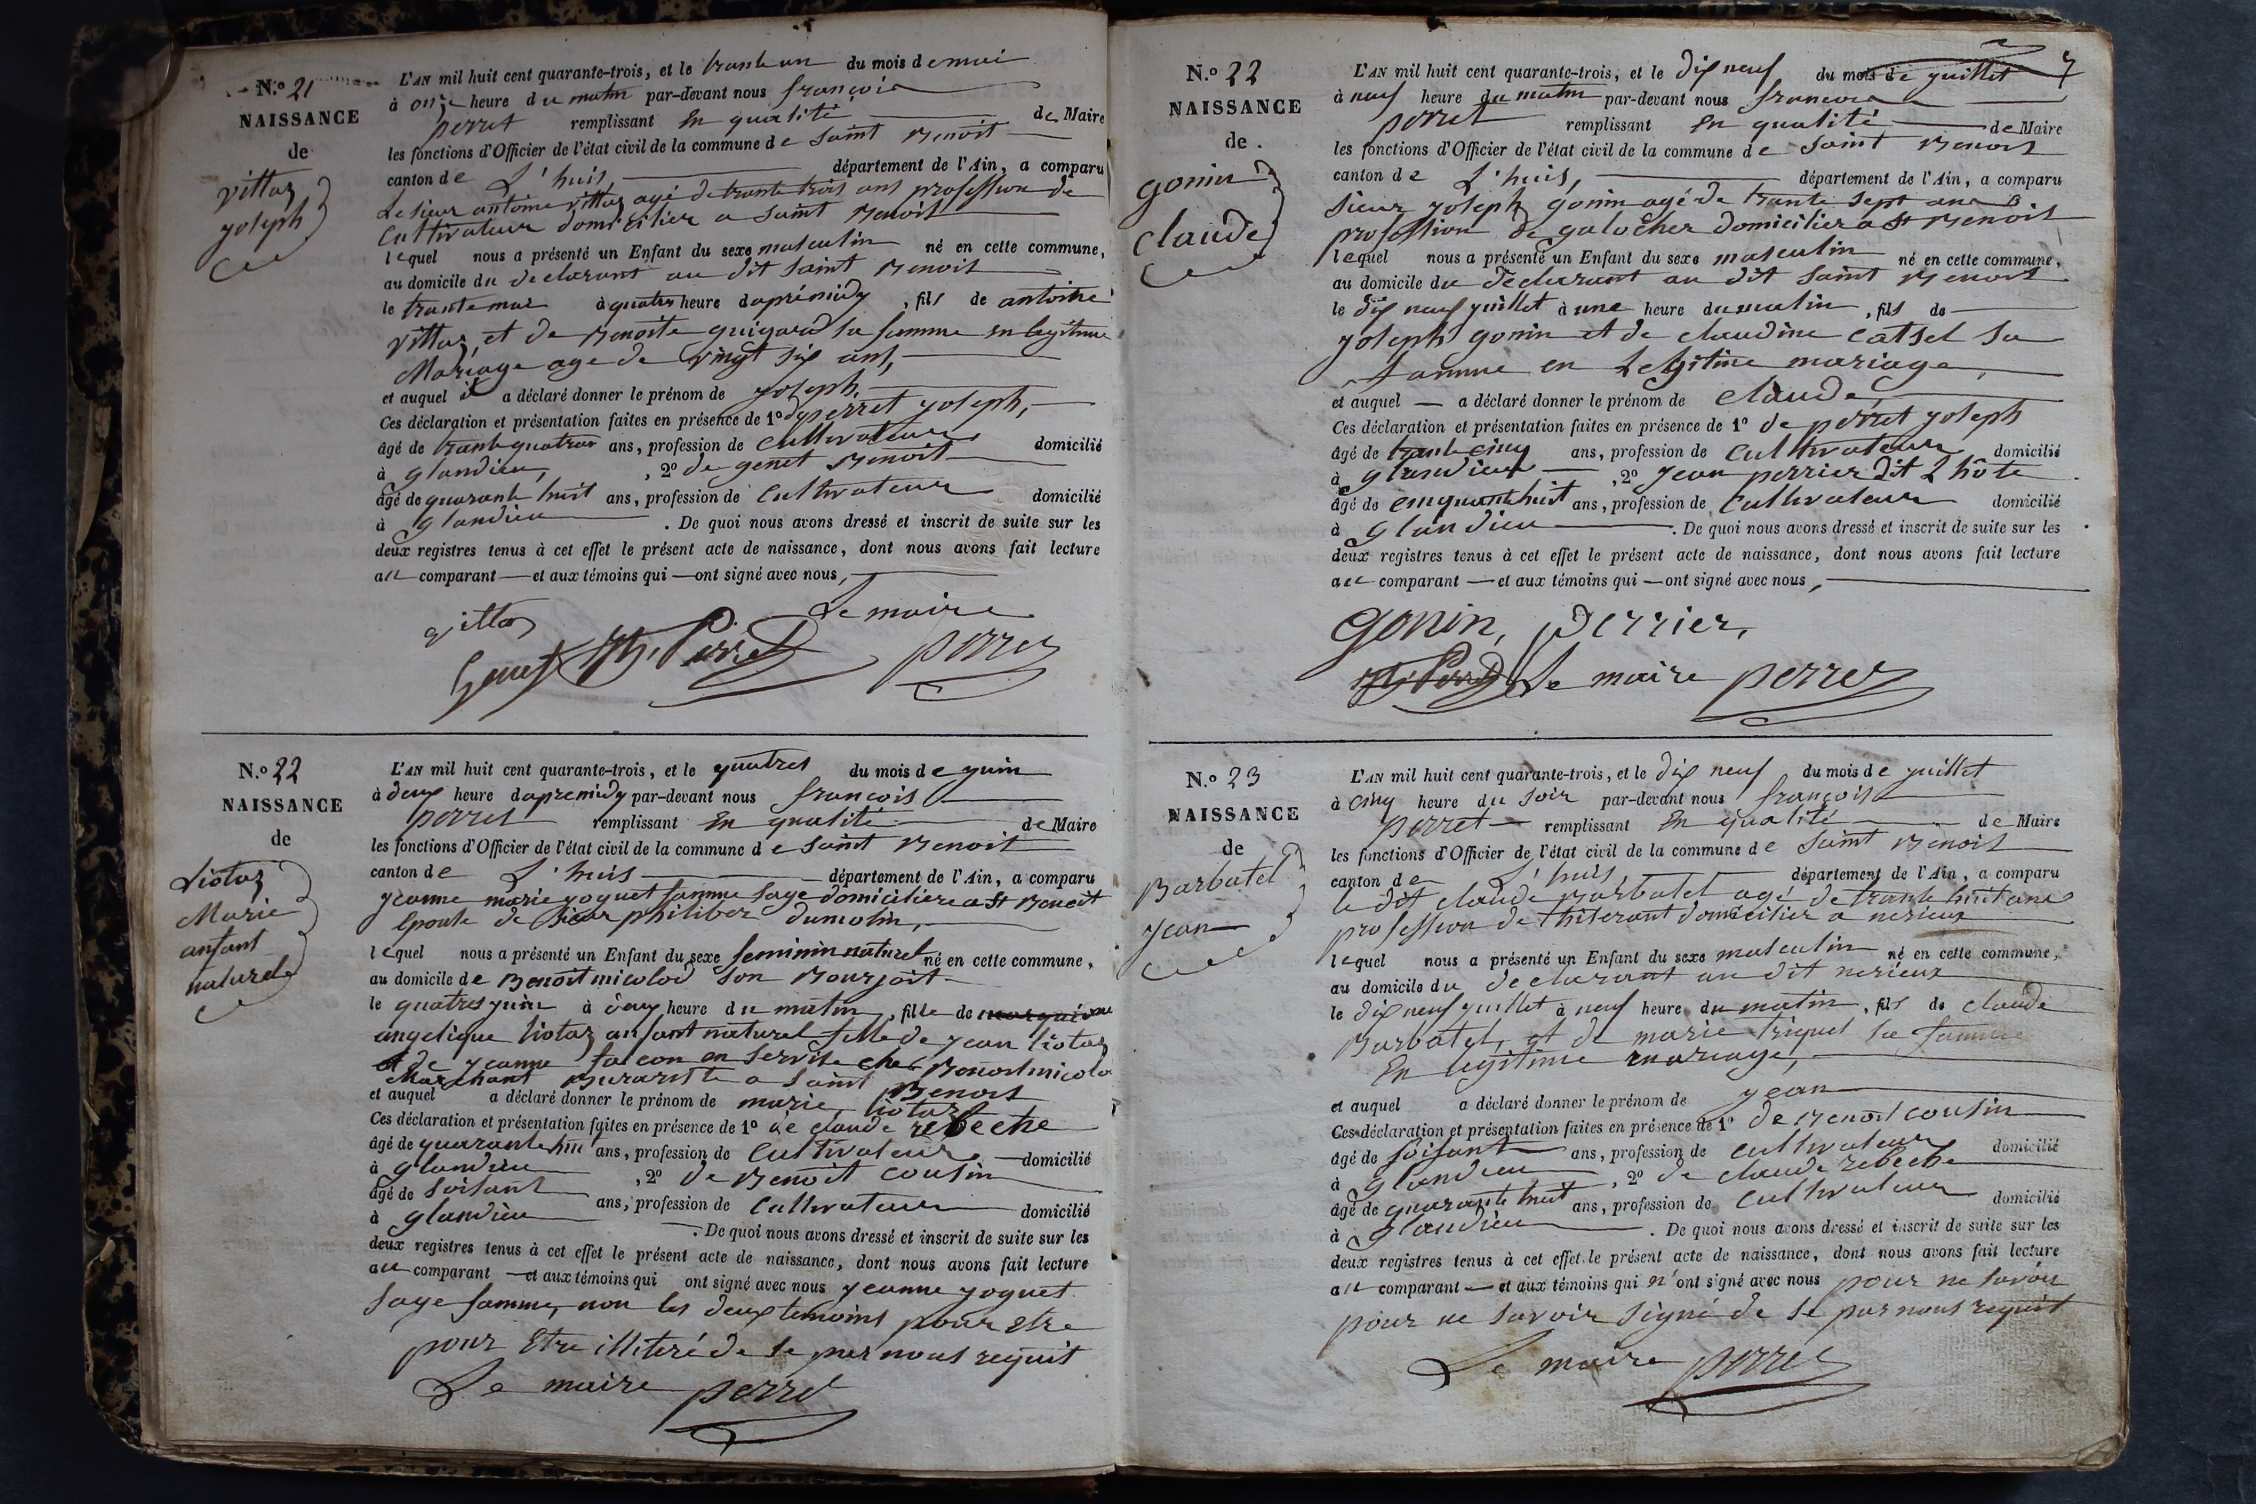 N.º 21
NAISSANCE
de
vittoz
yoseph
L'AN mil huit cent quarante-trois, et le trante un du mois de mai
à onze heure du matin par-devant nous françois
perret remplissant En qualité de Maire
les fonctions d'Officier de l'état civil de la commune de saint Benoit
canton de L'huis, département de l'Ain, a comparu
Le sieur antoine vittoz agé de trante trois ans profession de
Cultivateur domicilier a saint Benoit
lequel nous a présenté un Enfant du sexe masculin né en cette commune,
au domicile du declarant au dit saint Benoit
le trante mai à quatre heure daprémidy, fils de antoine
vittoz, et de Benoite guigard sa famme en legitime
Mariage age de vingt six ans,
et auquel il a déclaré donner le prénom de yoseph,
Ces déclaration et présentation faites en présence de 1º de perret yoseph,
âgé de trante quatre ans, profession de Cultivateur domicilié
à glandieu, 2º de genet Benoit
âgé de quarante huit ans, profession de Cultivateur domicilié
à glandieu. De quoi nous avons dressé et inscrit de suite sur les
deux registres tenus à cet effet le présent acte de naissance, dont nous avons fait lecture
au comparant et aux témoins qui ont signé avec nous,
vittoz Le maire
Genet Perret perret
N.º 22
NAISSANCE
de
Liotaz
Marie
anfant
naturel
L'AN mil huit cent quarante-trois, et le quatres du mois de yuin
à deux heure dapremidy par-devant nous françois
perret remplissant En qualité de Maire
les fonctions d'Officier de l'état civil de la commune de saint Benoit
canton de L'huis département de l'Ain, a comparu
yeanne marie yoguet famme sage domiciliere a St Benoit
Epouse de Sieur philiber dumolin,
lequel nous a présenté un Enfant du sexe feminin naturel né en cette commune,
au domicile de Benoit micolod son Bourjoit
le quatres yuin à deux heure du matin, fille de
angelique liotaz anfant naturel fille de yean liotaz
et de yeanne falcon en servise cher Benoit micolod
Marchant a saint Benoit
et auquel a déclaré donner le prénom de marie liotaz
Ces déclaration et présentation faites en présence de 1º de claude rebeche
âgé de quarante huit ans, profession de Cultivateur domicilié
à glandieu, 2º de Benoit cousin
âgé de soisant ans, profession de Cultivateur domicilié
à glandieu. De quoi nous avons dressé et inscrit de suite sur les
deux registres tenus à cet effet le présent acte de naissance, dont nous avons fait lecture
au comparant et aux témoins qui ont signé avec nous yeanne yoguet
sage famme, non les deux temoins pour etre
pour Etre illiteré de se par nous requit
Le maire perret
7
N.º 22
NAISSANCE
de
gonin
claude
L'AN mil huit cent quarante-trois, et le dix neuf du mois de yuillet
à neuf heure du matin par-devant nous francois
perret remplissant En qualité de Maire
les fonctions d'Officier de l'état civil de la commune de saint Benoit
canton de L'huis, département de l'Ain, a comparu
sieur yoseph gonin agé de trante sept ans
profession de galocher domicilier a St Benoit
lequel nous a présenté un Enfant du sexe masculin né en cette commune,
au domicile du declarant au dit saint Benoit
le dix neuf yuillet à une heure du matin, fils de
yoseph gonin et de claudine catsel sa
famme en Legitime mariage,
et auquel a déclaré donner le prénom de claude,
Ces déclaration et présentation faites en présence de 1º de perret yoseph
âgé de trante cinq ans, profession de Cultivateur domicilié
à glandieu, 2º yean perrier dit L'hôte
âgé de cinquante huit ans, profession de Cultivateur domicilié
à glandieu. De quoi nous avons dressé et inscrit de suite sur les
deux registres tenus à cet effet le présent acte de naissance, dont nous avons fait lecture
au comparant et aux témoins qui ont signé avec nous,
Gonin, perrier,
Perret Le maire perret
N.º 23
NAISSANCE
de
Barbatel
yean
L'AN mil huit cent quarante-trois, et le dix neuf du mois de yuillet
à cinq heure du soir par-devant nous françois
perret remplissant En qualité de Maire
les fonctions d'Officier de l'état civil de la commune de saint Benoit
canton de L'huis, département de l'Ain, a comparu
le dit claude Barbatel agé de trante huit ans
profession de thiterant domicilier a nerieux
lequel nous a présenté un Enfant du sexe masculin né en cette commune,
au domicile du declarant au dit nerieux
le dix neuf yuillet à neuf heure du matin, fils de claude
Barbatel, et de marie triquet sa famme
En legitime mariage,
et auquel a déclaré donner le prénom de yean
Ces déclaration et présentation faites en présence de 1º de Benoit cousin
âgé de soisant ans, profession de cultivateur domicilié
à glandieu, 2º de claude rebeche
âgé de quarante huit ans, profession de cultivateur domicilié
à glandieu. De quoi nous avons dressé et inscrit de suite sur les
deux registres tenus à cet effet le présent acte de naissance, dont nous avons fait lecture
au comparant et aux témoins qui n'ont signé avec nous pour ne savoir
pour ne savoir signé de se par nous requit
Le maire perret